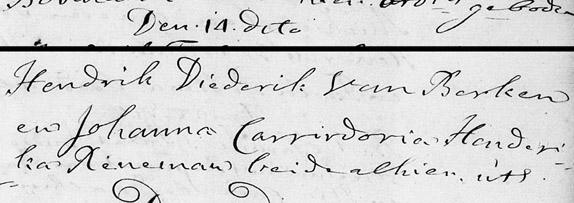 geboden
Den. 14. dito
Hendrik Diederik Van Berken
en Johanna Carrirdoria Henderi-
ka Reneman beide alhier. uts.